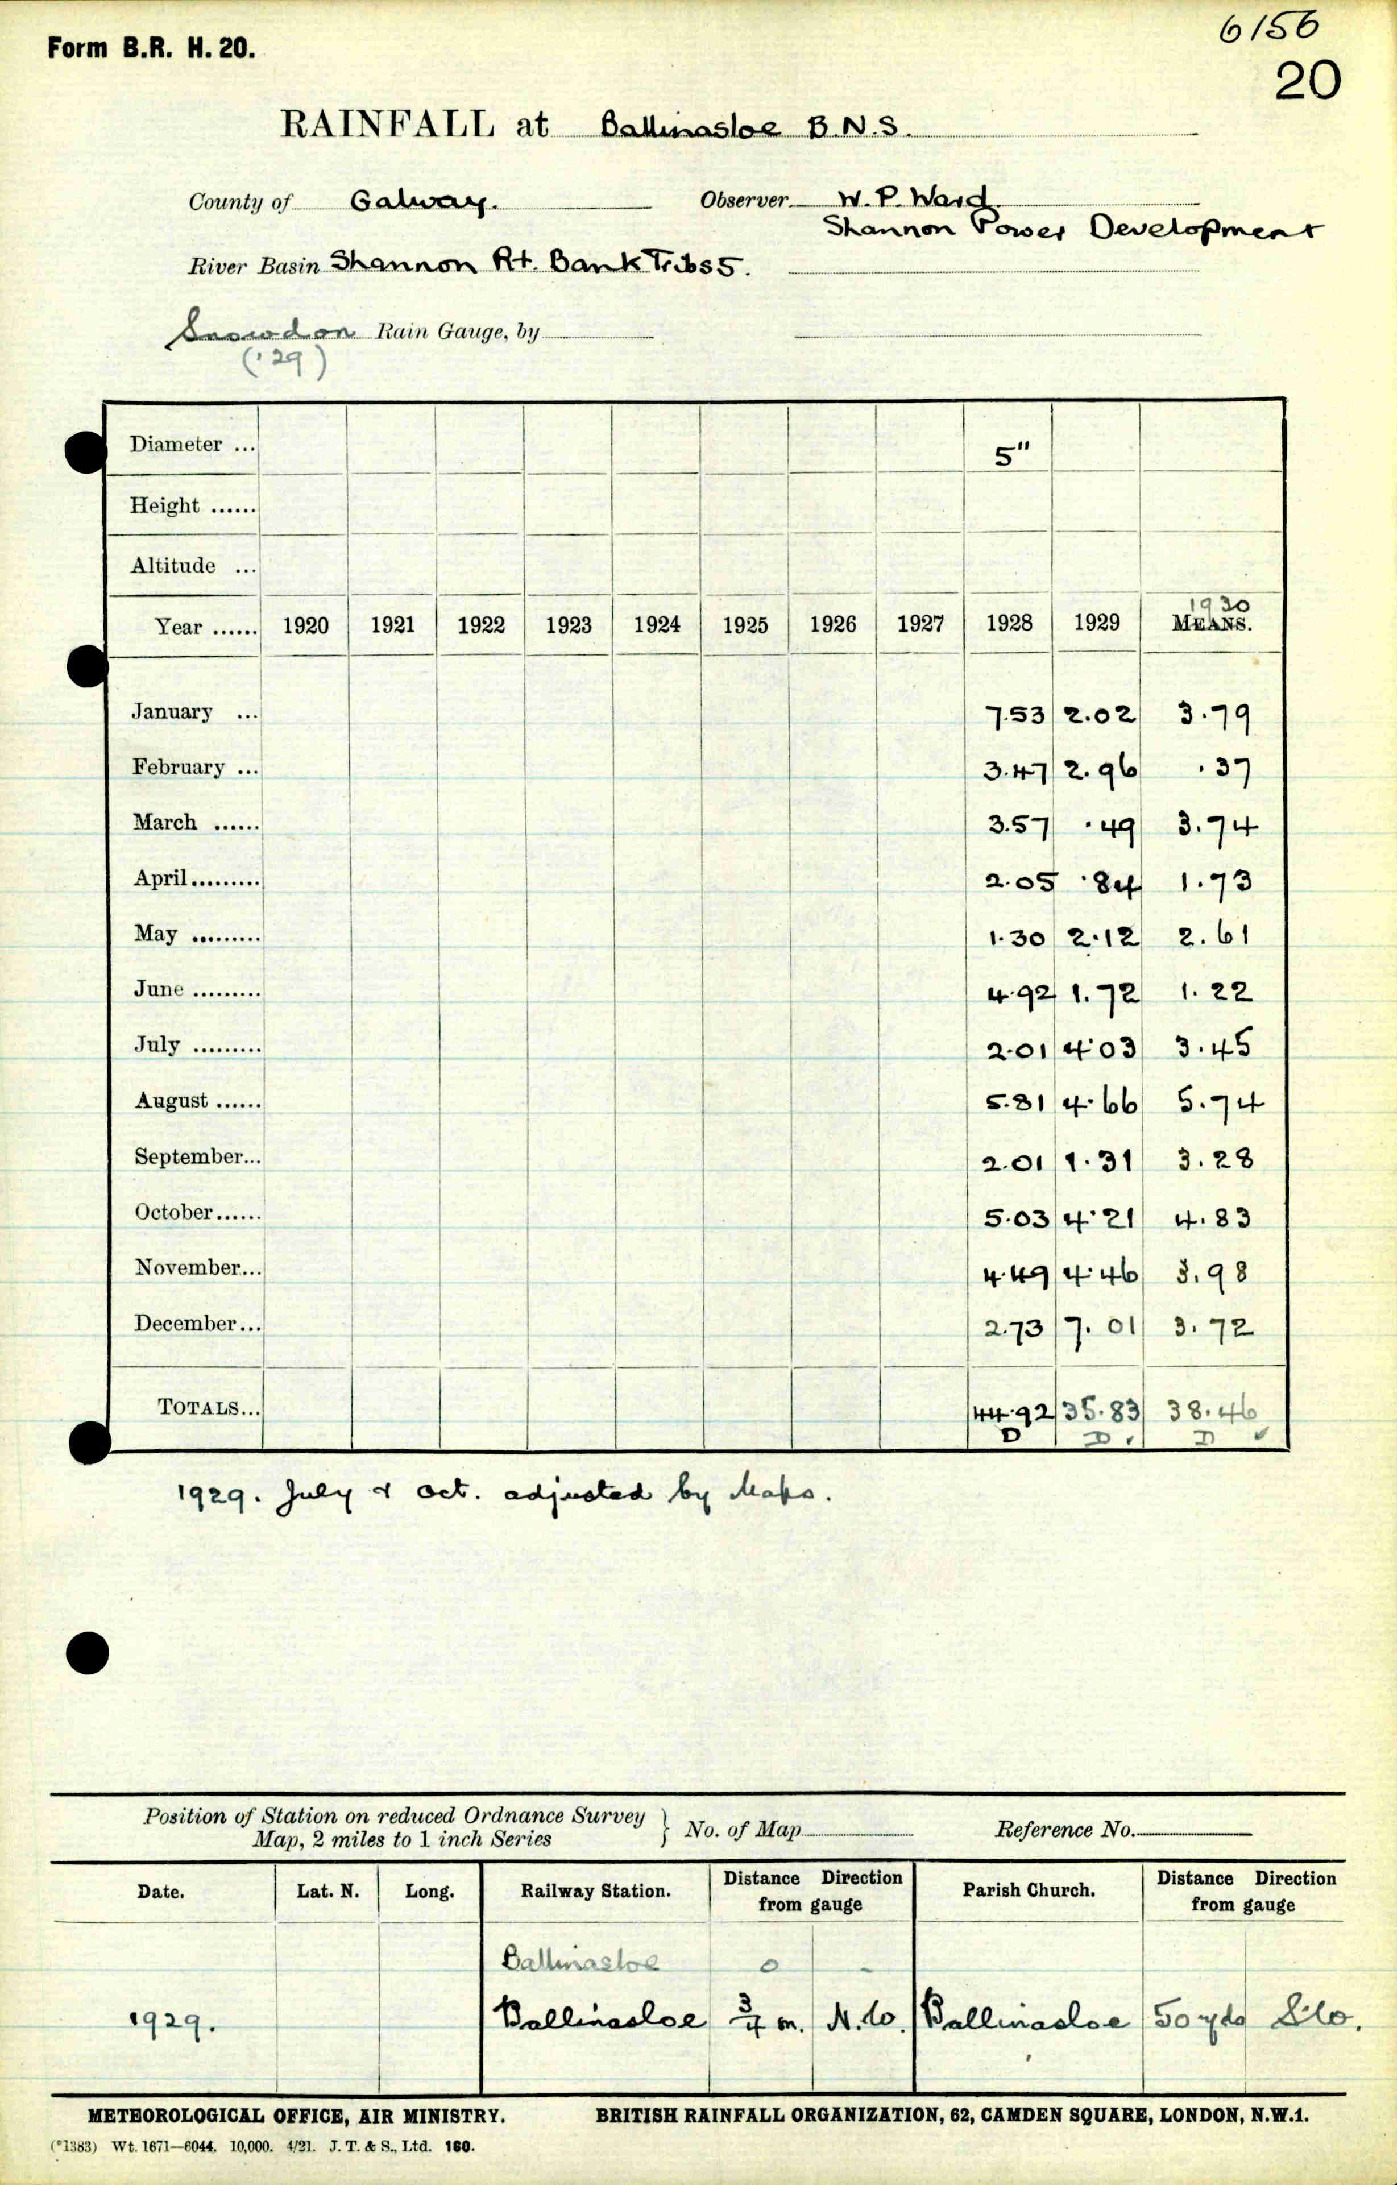 6156
Form B.R. H. 20.
20
RAINFALL at Ballinasloe B.N.S.
County of Galway. Observer W. P. Ward.
Shannon Power Development
River Basin Shannon Rt. Bank Tribs 5.
Snowdon Rain Gauge, by
('29)
Diameter ... 5"
Height ......
Altitude ...
1930
Year ...... 1920 1921 1922 1923 1924 1925 1926 1927 1928 1929 MEANS.
January ... 7.53 2.02 3.79
February ... 3.47 2.96 .37
March ...... 3.57 .49 3.74
April ......... 2.05 .84 1.73
May ......... 1.30 2.12 2.61
June ......... 4.92 1.72 1.22
July ......... 2.01 4.03 3.45
August ...... 5.81 4.66 5.74
September... 2.01 1.31 3.28
October ...... 5.03 4.21 4.83
November... 4.49 4.46 3.98
December... 2.73 7.01 3.72
TOTALS... 44.92 35.83 38.46
D D ✓ D ✓
1929. July & Oct. adjusted by Maps.
Position of Station on reduced Ordnance Survey
Map, 2 miles to 1 inch Series } No. of Map Reference No.
Date. Lat. N. Long. Railway Station. Distance Direction from gauge Parish Church. Distance Direction from gauge
Ballinasloe 0 -
1929. Ballinasloe 3/4 m. N.W. Ballinasloe 50 yds S.W.
METEOROLOGICAL OFFICE, AIR MINISTRY. BRITISH RAINFALL ORGANIZATION, 62, CAMDEN SQUARE, LONDON, N.W.1.
(*1383) Wt. 1671—6044. 10,000. 4/21. J. T. & S., Ltd. 160.